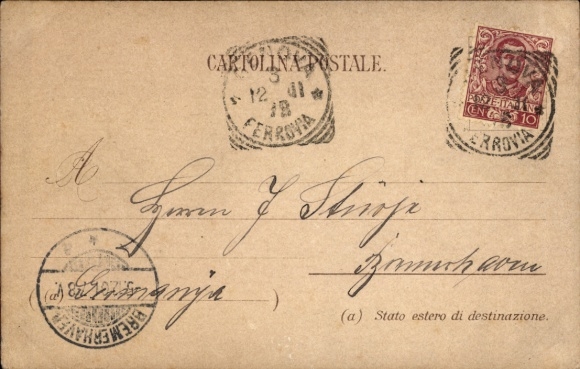 CARTOLINA POSTALE.
GENOVA
3
12 01
FERROVIA
POSTE ITALIANE
CENT. 10
GENOVA
FERROVIA
A Herrn J
Bremerhaven
(a) Germania )
BREMERHAVEN
(a) Stato estero di destinazione.